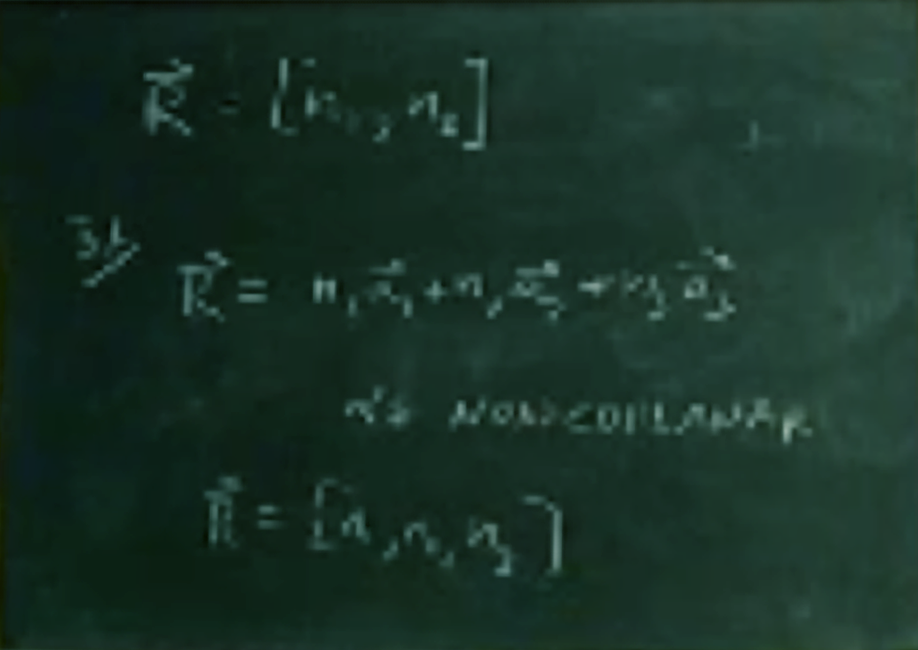 R⃗ = [n₁, n₂]
3d R⃗ = n₁a⃗₁ + n₂a⃗₂ + n₃a⃗₃
a's NON-COPLANAR
R⃗ = [n₁, n₂, n₃]